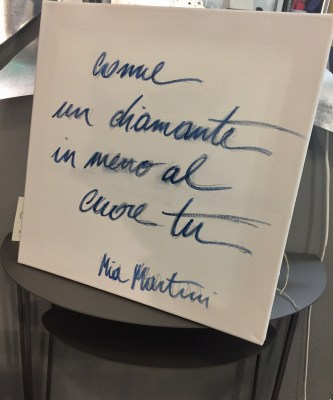 come
un diamante
in mezzo al
cuore tu
Mia Martini